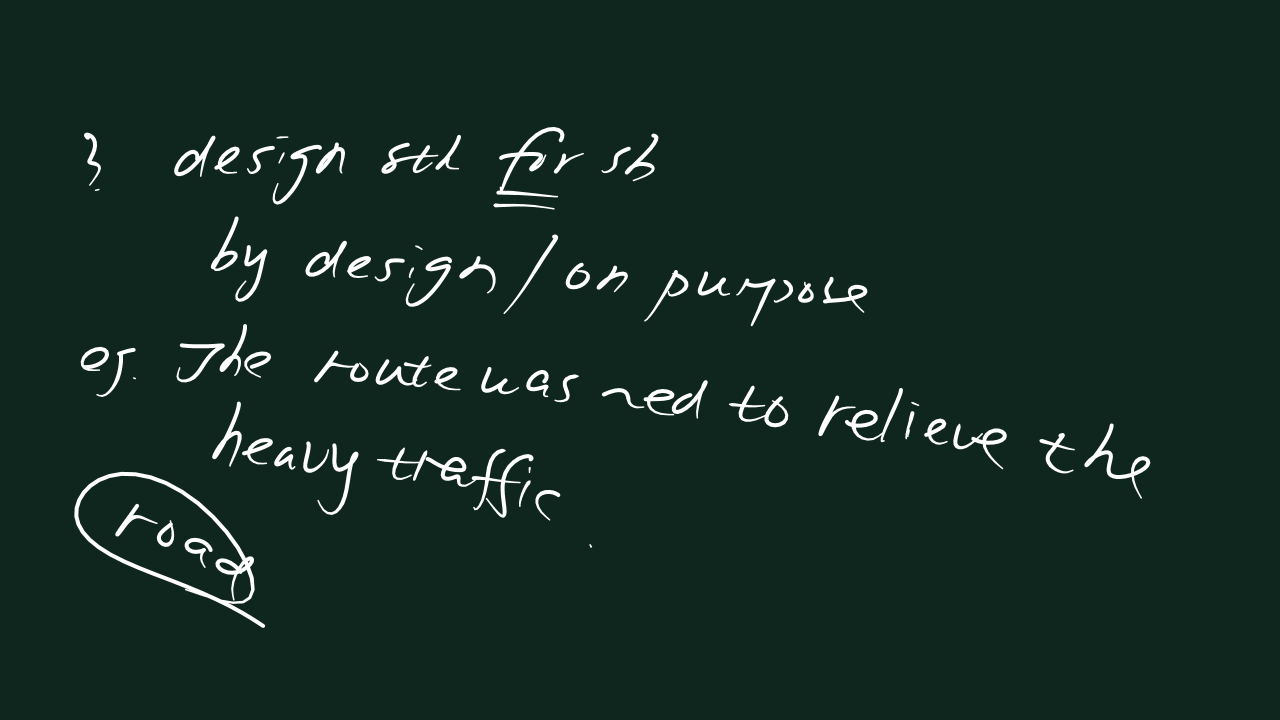 3. design sth for sb
by design / on purpose
eg. The route was ~ned to relieve the
heavy traffic.
road